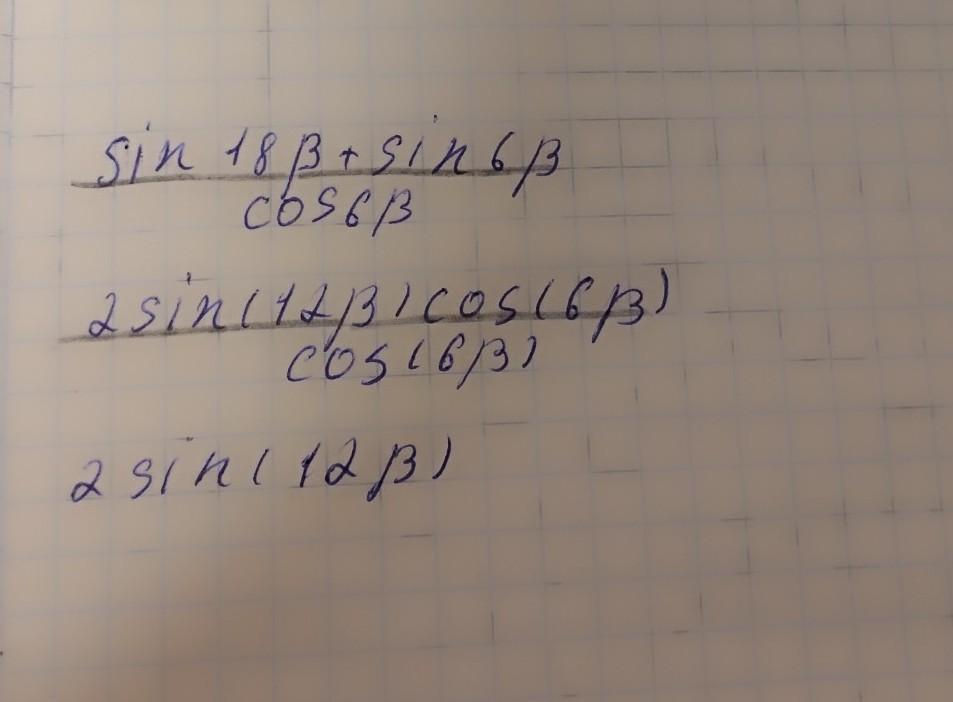 sin 18β + sin 6β
cos 6β
2 sin(12β) cos(6β)
cos(6β)
2 sin(12β)